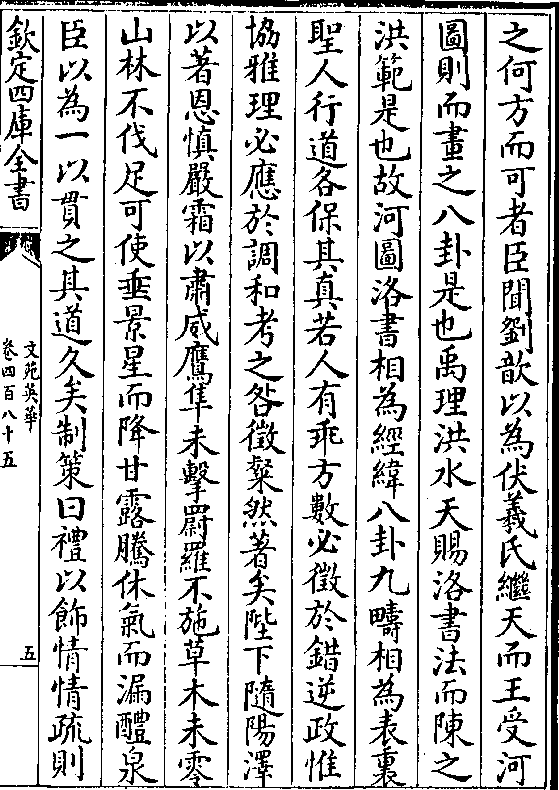 之何方而可者臣聞劉歆以為伏羲氏繼天而王受河
圖則而畫之八卦是也禹理洪水天賜洛書法而陳之
洪範是也故河圖洛書相為經緯八卦九疇相為表裏
聖人行道各保其真若人有乖方數必徵於錯逆政惟
協雅理必應於調和考之咎徵粲然著矣陛下隨陽澤
以著恩慎嚴霜以肅威鷹隼未擊罻羅不施草木未零
山林不伐足可使垂景星而降甘露騰休氣而漏醴泉
臣以為一以貫之其道久矣制策曰禮以飾情情疏則
欽定四庫全書
文苑英華
卷四百八十五
五